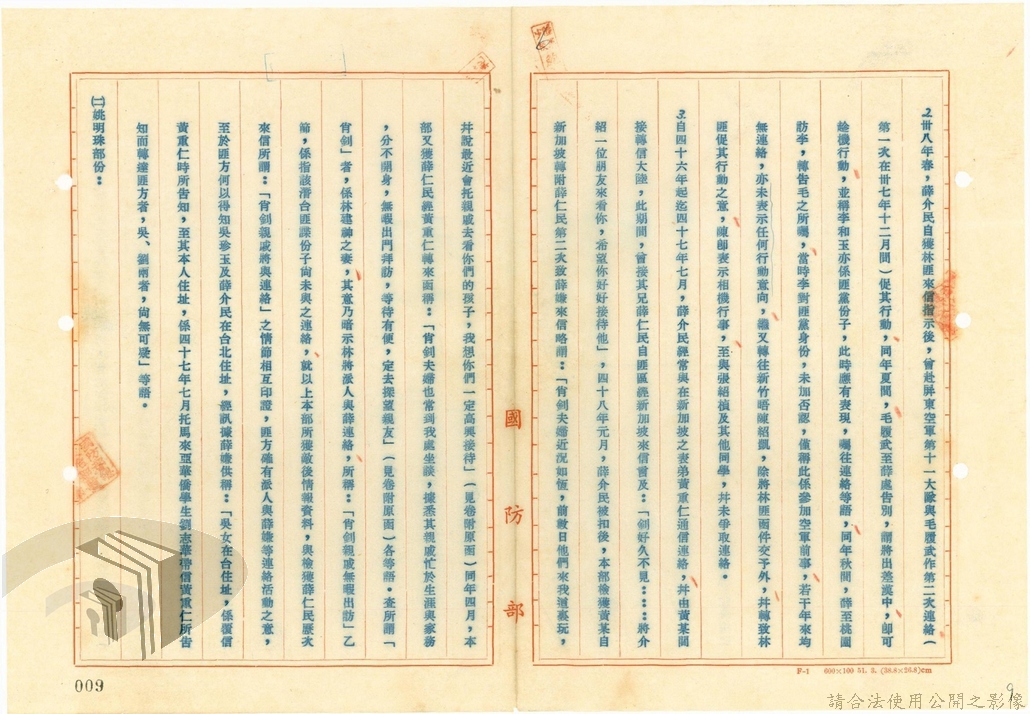 2.卅八年春，薛介民自獲林匪來信指示後，曾赴屏東空軍第十一大隊與毛履武作第二次連絡（
第一次在卅七年十二月間）促其行動，同年夏間，毛履武至薛處告別，謂將出差漢中，即可
趁機行動，並稱李和玉亦係匪黨份子，此時應有表現，囑往連絡等語，同年秋間，薛至桃園
訪李，轉告毛之所囑，當時李對匪黨身份，未加否認，僅稱此係參加空軍前事，若干年來均
無連絡，亦未表示任何行動意向，繼又轉往新竹晤陳紹凱，除將林匪函件交予外，幷轉致林
匪促其行動之意，陳卽表示相機行事，至與張紹楨及其他同學，幷未爭取連絡。
3.自四十六年起迄四十七年七月，薛介民經常與在新加坡之表弟黃重仁通信連絡，幷由黃某間
接轉信大陸，此期間，曾接其兄薛仁民自匪區經新加坡來信曾及：「劍好久不見⋯⋯將介
紹一位朋友來看你，希望你好好接待他」，四十八年元月，薛介民被扣後，本部檢獲黃某自
新加坡轉附薛仁民第二次致薛嫌來信略謂：「肖劍夫婦近況如恆，前數日他們來我這裏玩，
幷說最近會托親戚去看你們的孩子，我想你們一定高興接待」（見卷附原函）同年四月，本
部又獲薛仁民經黃重仁轉來函稱：「肖劍夫婦也常到我處坐談，據悉其親戚忙於生涯與家務
，分不開身，無暇出門拜訪，等待有便，定去探望親友」（見卷附原函）各等語。查所謂「
肖劍」者，係林建神之妻，其意乃暗示林將派人與薛連絡，所稱：「肖劍親戚無暇出訪」乙
節，係指該潛台匪諜份子尙未與之連絡，就以上本部所獲敵後情報資料，與檢獲薛仁民歷次
來信所謂：「肖劍親戚將與連絡」之情節相互印證，匪方確有派人與薛嫌等連絡活動之意，
至於匪方何以得知吳珍玉及薛介民在台北住址，經訊據薛嫌供稱：「吳女在台住址，係覆信
黃重仁時所告知，至其本人住址，係四十七年七月托馬來亞華僑學生劉志華帶信黃重仁所告
知而轉達匪方者，吳、劉兩者，尙無可疑」等語。
㈡姚明珠部份：
國防部
F-1 600×100 51. 3. (38.8×26.8)cm
009
9
請合法使用公開之影像